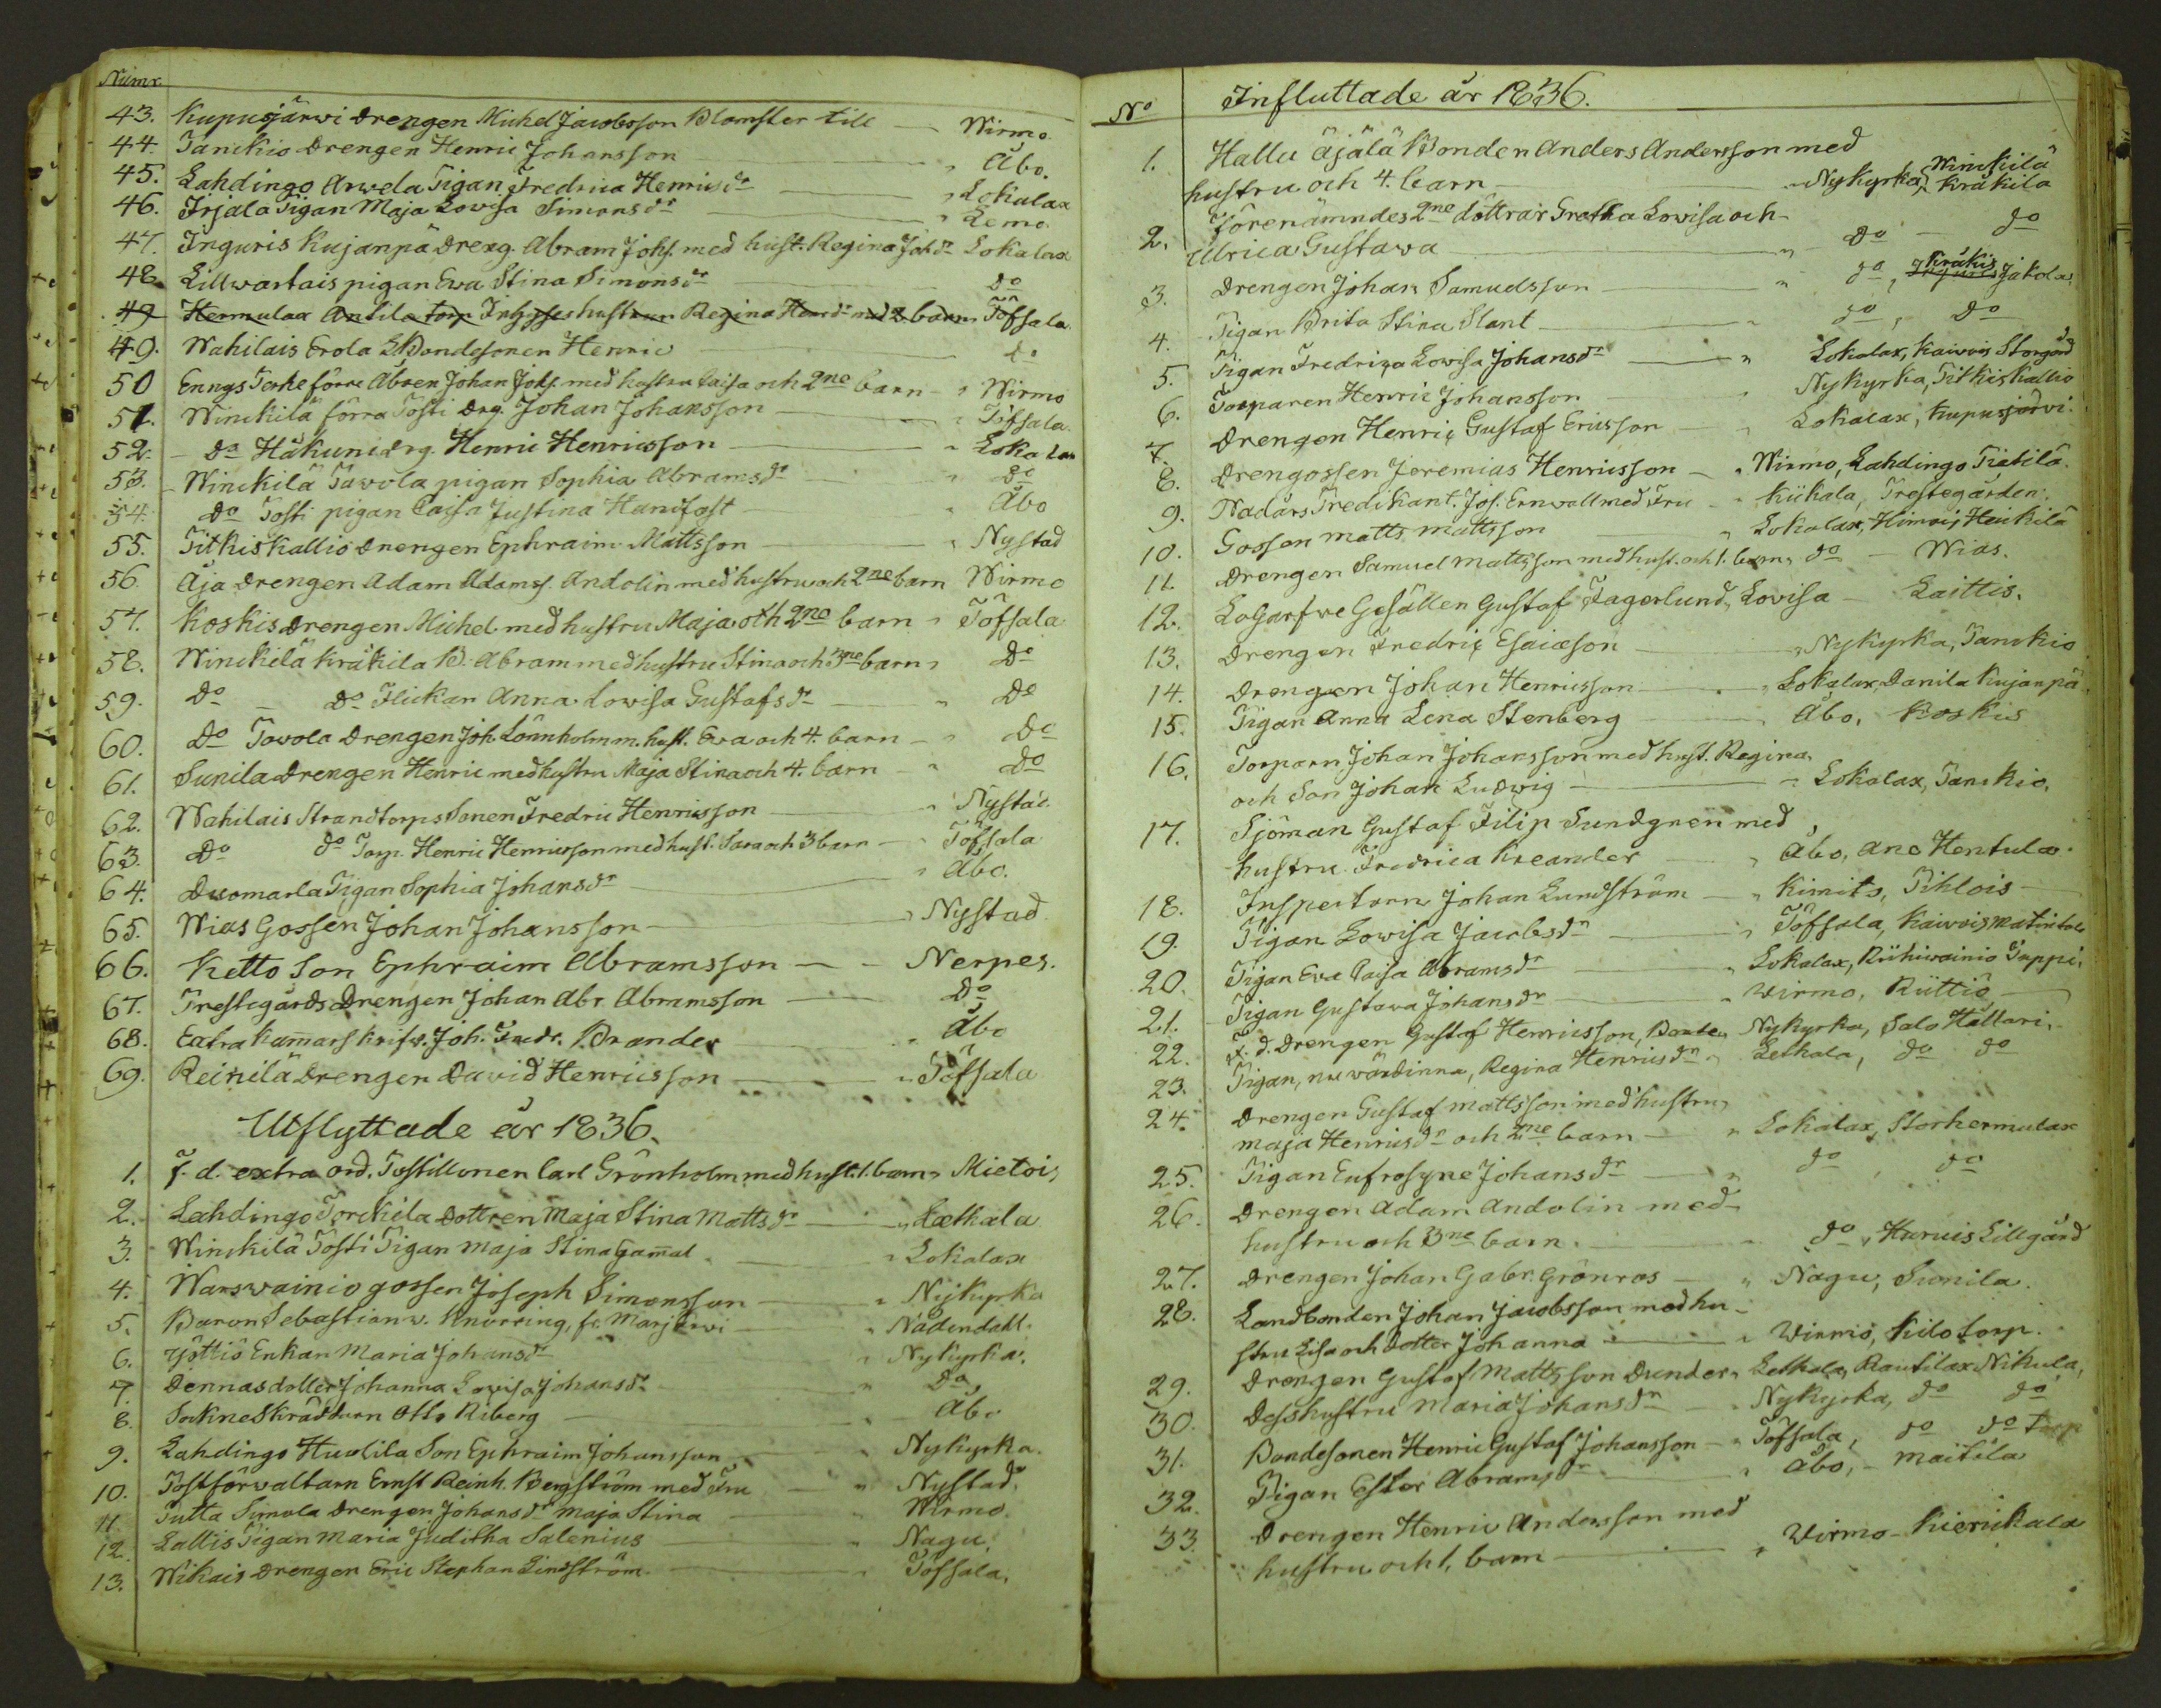 Numr.
43. Kupusjärwi Drengen Michel Jacobsson Blomster till — Wirmo.
44. Tanckio Drengen Henric Johansson — " Åbo.
45. Lahdingo Arwela Pigan Fredrica Henricsdr — " Lokalax
46. Irjala Pigan Maja Lowisa Simonsdr — " Lemo.
47. Inguris Kujanpä Dreng. Abram Johs. med hust. Regina Johdr Lokalax
48. Lillwartais pigan Ewa Stina Simonsdr — Do
49 Hermulax Antila torp Inhyses hustrun Regina Henrdr med 2 barn Töfsala
49. Wahilais Erola Bondesonen Henric — do
50 Ennys Torke förre Åboen Johan Johs. med hustru Caisa och 2ne barn — " Wirmo
51. Winckilä förra Tosti Drg. Johan Johansson — " Töfsala.
52. — Do Häkuni drg. Henric Henricsson — " Lokalax
53. Winckilä Tawola pigan Sophia Abramsdr — " Do
54. Do Tosti pigan Caisa Justina Handfast — " Åbo
55. Pitkiskallio Drengen Ephraim Mattsson — " Nystad
56. Äja Drengen Adam Adamss. Andolin med hustru och 2ne barn Wirmo
57. Koskis Drengen Michel med hustru Maja och 2ne barn " Töfsala
58. Winckilä Kräkila B. Abram med hustru Stina och 3ne barn " Do
59. Do — Do Flickan Anna Lowisa Gustafsdr — " Do
60. Do Tavola Drengen Joh. Lönnholm m. hust. Eva och 4. barn — " Do
61. Sunila Drengen Henric med hustru Maja Stina och 4. barn — " Do
62. Wahilais Strandtorps Sonen Fredric Henricsson — " Nystad.
63. Do do Torp. Henric Henricsson med hust. Sara och 3 barn — " Töfsala
64. Duomarla Pigan Sophia Johansdr — " Åbo.
65. Wias Gossen Johan Johansson — " Nystad
66. Ketto Son Ephraim Abramsson — Nerpes.
67. Prestegårds Drengen Johan Abr. Abramsson — Do
68. Extra Kamarskrifv. Joh. Fredr. Brander — " Åbo
69. Reinilä Drengen David Henricsson — " Töfsala
Utflyttade år 1836.
1. f. d. extra ord. Postillonen Carl Grönholm med hust. 1. barn " Mietois
2. Lahdingo Torckila Dottren Maja Stina Mattsdr — " Letkala
3. Winckilä Tosti Pigan Maja Stina Gamal — " Lokalax
4. Warswainio gossen Joseph Simonsson — " Nykyrka
5. Baron Sebastian v. Knorring, fr. Marjärwi — " Nådendahl.
6. Yöttiö Enkan Maria Johansdr — " Nykyrka.
7. Dennas dotter Johanna Lowisa Johansdr — " Do
8. Sockneskräddarn Otto Riberg — " Åbo
9. Lahdingo Huolila Son Ephraim Johansson — " Nykyrka.
10. Postförwaltarn Ernst Reinh. Bergström med Fru — " Nystad.
11. Tutta Simola Drengen Johansdr Maja Stina — " Wirmo.
12. Lallis Pigan Maria Juditha Salenius — " Nagu,
13. Wikais Drengen Eric Stephan Lindström — " Töfsala,
No Influttade år 1836.
1. Hallu Äjälä Bonden Anders Andersson med
hustru och 4. barn — " Nykyrka, Winckilä Kräkila
2. Förenämndes 2ne döttrar Gretha Lowisa och
Ulrica Gustava — " Do — do
3. Drengen Johan Samuelsson — " do, Kräkis Jakola.
4. Pigan Brita Stina Slant — " do, Do
5. Pigan Fredrica Lowisa Johansdr — " Lokalax, Kaivois Storgård
6. Torparen Henric Johansson — " Nykyrka, Pitkiskallio
7. Drengen Henric Gustaf Ericsson — " Lokalax, Kupusjärvi.
8. Drengossen Jeremias Henricsson — " Wirmo, Lahdingo Pietilä.
9. Nådårs Predikant. Jos. Ernvall med Fru — " Kiikala, Prestegården.
10. Gossen Matts Mattsson — " Lokalax, Himois Heikilä
11. Drengen Samuel Mattsson med hust. och 1. barn " do — Wias.
12. LoGarfwe Gesällen Gustaf Fagerlund, Lovisa — Laittis.
13. Drengen Fredric Esaiæson — " Nykyrka, Tanckio
14. Drengen Johan Henricsson — " Lokalax, Danila Kujanpä.
15. Pigan Anna Lena Stenberg — " Åbo, Koskis
16. Torparn Johan Johansson med hust. Regina
och Son Johan Ludwig — " Lokalax, Tanckio,
17. Sjöman Gustaf Filip Sundgren med
hustru Fredrica Kreander — " Åbo, Ano Hentula.
18. Inspectorn Johan Lundström — " Kimito, Pihlois —
19. Pigan Lowisa Jacobsdr — " Töfsala, Kaivois Matintalo
20. Pigan Eva Caisa Abramsdr — " Lokalax, Riihiwainio Seppi.
21. Pigan Gustava Johansdr — " Wirmo, Rüttiö, —
22. f. d. Drengen Gustaf Henricsson, Bonde " Nykyrka, Salo Hallari.
23. Pigan, nu wärdinna, Regina Henricsdr " Letkala, do do
24. Drengen Gustaf Mattsson med hustru
Maja Henricsdr och 2ne barn — " Lokalax, Storhermulax
25. Pigan Eufrosyne Johansdr — " do, do
26. Drengen Adam Andolin med
hustru och 3ne barn. — " do, Huruis Lillgård
27. Drengen Johan Gabr. Grönros — " Nagu, Sunila.
28. Landbonden Johan Jacobsson med hu-
stru Lisa och Dotter Johanna — " Wirmo, Kilo torp.
29. Drengen Gustaf Mattsson Dunder " Letkala, Rautilax Nikula,
30. Desshustru Maria Johansdr — " Nykyrka, do do
31. Bondesonen Henric Gustaf Johansson — " Töfsala, do do torp
32. Pigan Ester Abramsdr — " Åbo, — Maitila
33. Drengen Henric Andersson med
hustru och 1, barn — " Wirmo — Kierickala